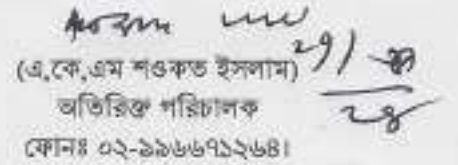 (এ,কে,এম শওকত ইসলাম)
অতিরিক্ত পরিচালক
ফোনঃ ০২-৯৯৬৬৭১২৬৪।